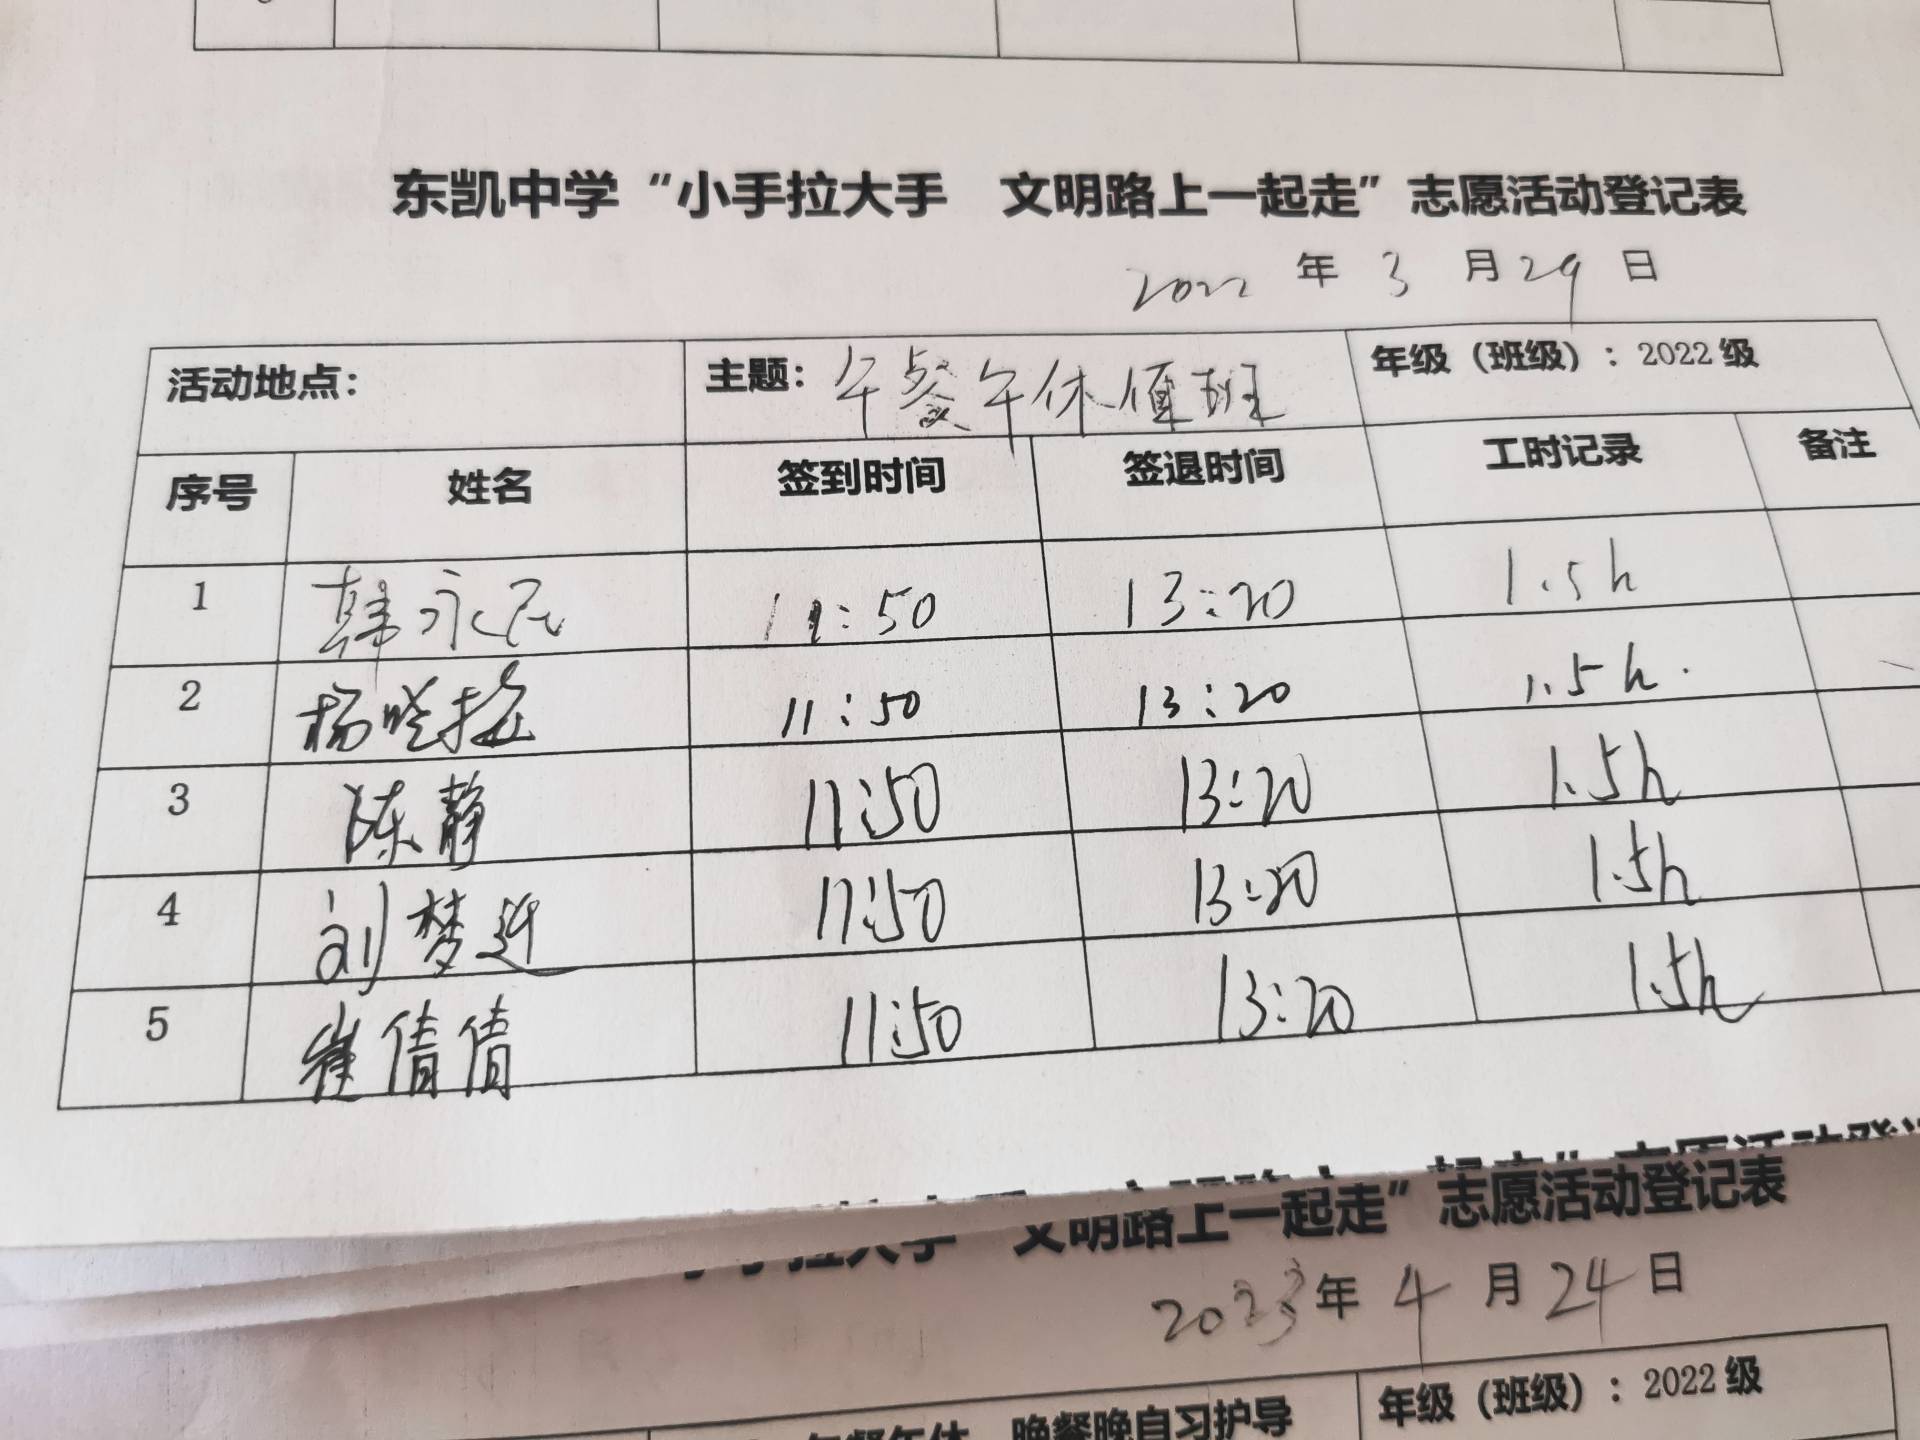 东凯中学“小手拉大手 文明路上一起走”志愿活动登记表
2022 年 3 月 29 日
活动地点： 主题：午餐午休值班 年级（班级）：2022 级
序号 姓名 签到时间 签退时间 工时记录 备注
1 韩永民 11:50 13:20 1.5h
2 杨晓 11:50 13:20 1.5h.
3 陈静 11:50 13:20 1.5h
4 刘梦 11:50 13:20 1.5h
5 崔倩倩 11:50 13:20 1.5h
小手拉大手 文明路上一起走”志愿活动登记表
2023 年 4 月 24 日
午餐午休、晚餐晚自习护导 年级（班级）：2022 级